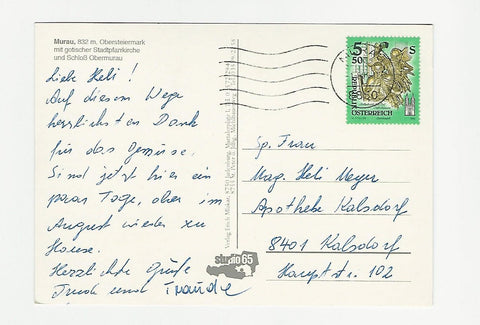 Murau, 832 m, Obersteiermark
mit gotischer Stadtpfarrkirche
und Schloß Obermurau
Liebe Heli!
Auf diesem Wege
herzlichsten Dank
für das Gemüse.
Sind jetzt hier ein
paar Tage, aber im
August wieder zu
Hause.
Herzlichte Grüße
und Traudke
studio 65
5 50
S
ÖSTERREICH
Sp. Frau
Mag. Heli Meyer
Apotheke Kalsdorf
8401 Kalsdorf
Hauptstr. 102